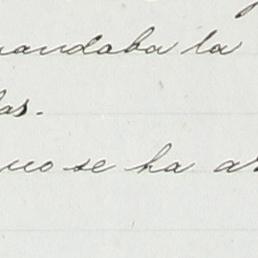 mandaba la
las.
no se ha a